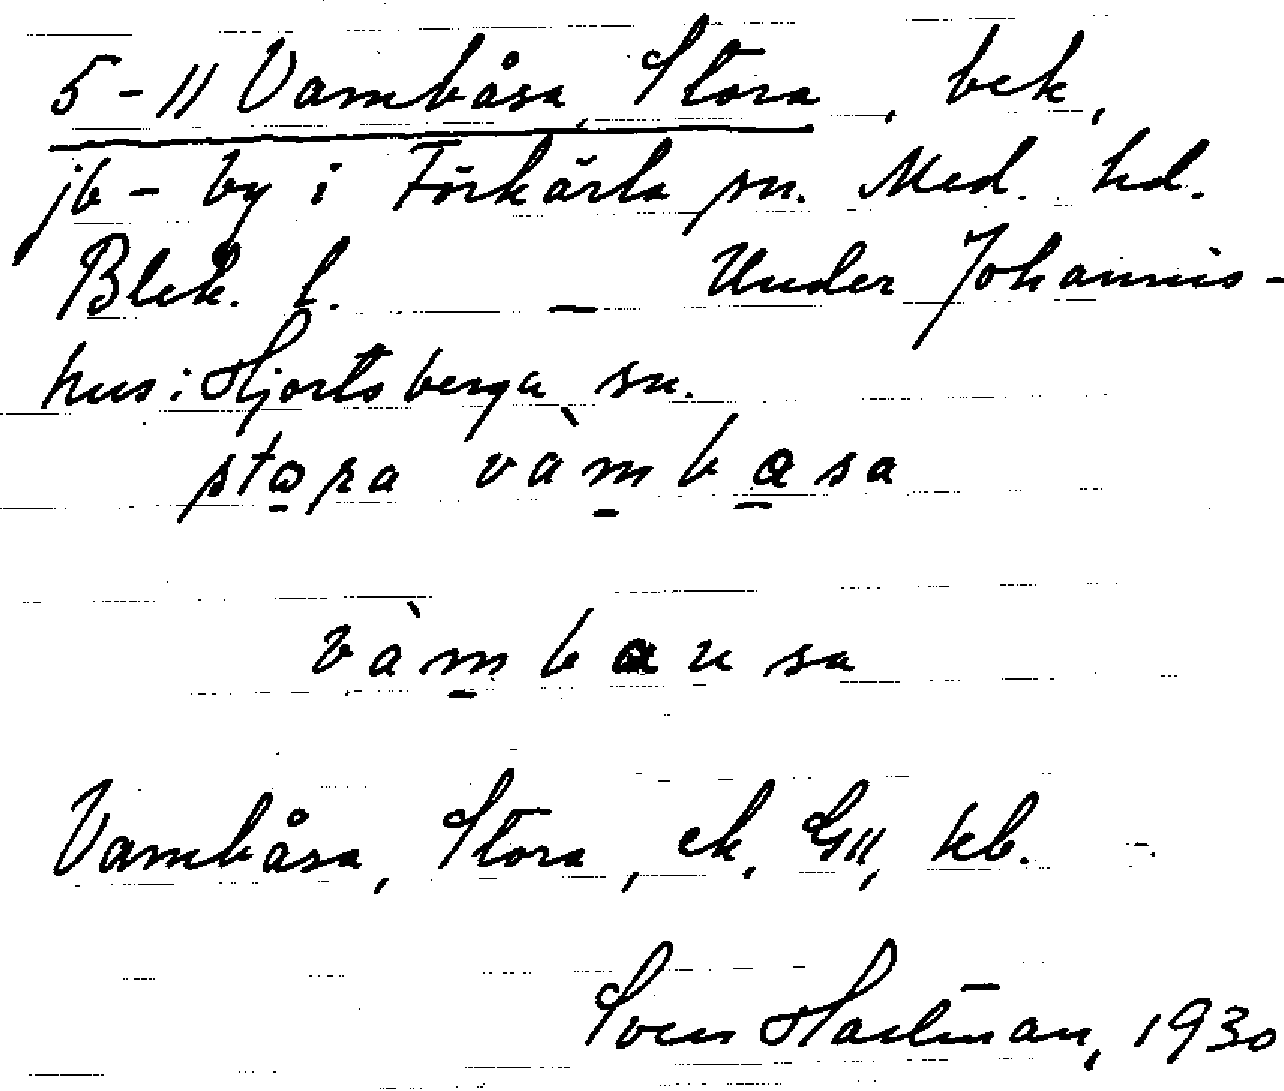 5-11 Vambåsa, Stora, bek,
jb - by i Förkärla sn. Med. hd.
Blek. l. — Under Johannis-
hus i Hjortsberga sn.
stora vàmbasa
vàmbausa
Vambåsa, Stora, ek, G11, kb.
Sven Hartman, 1930